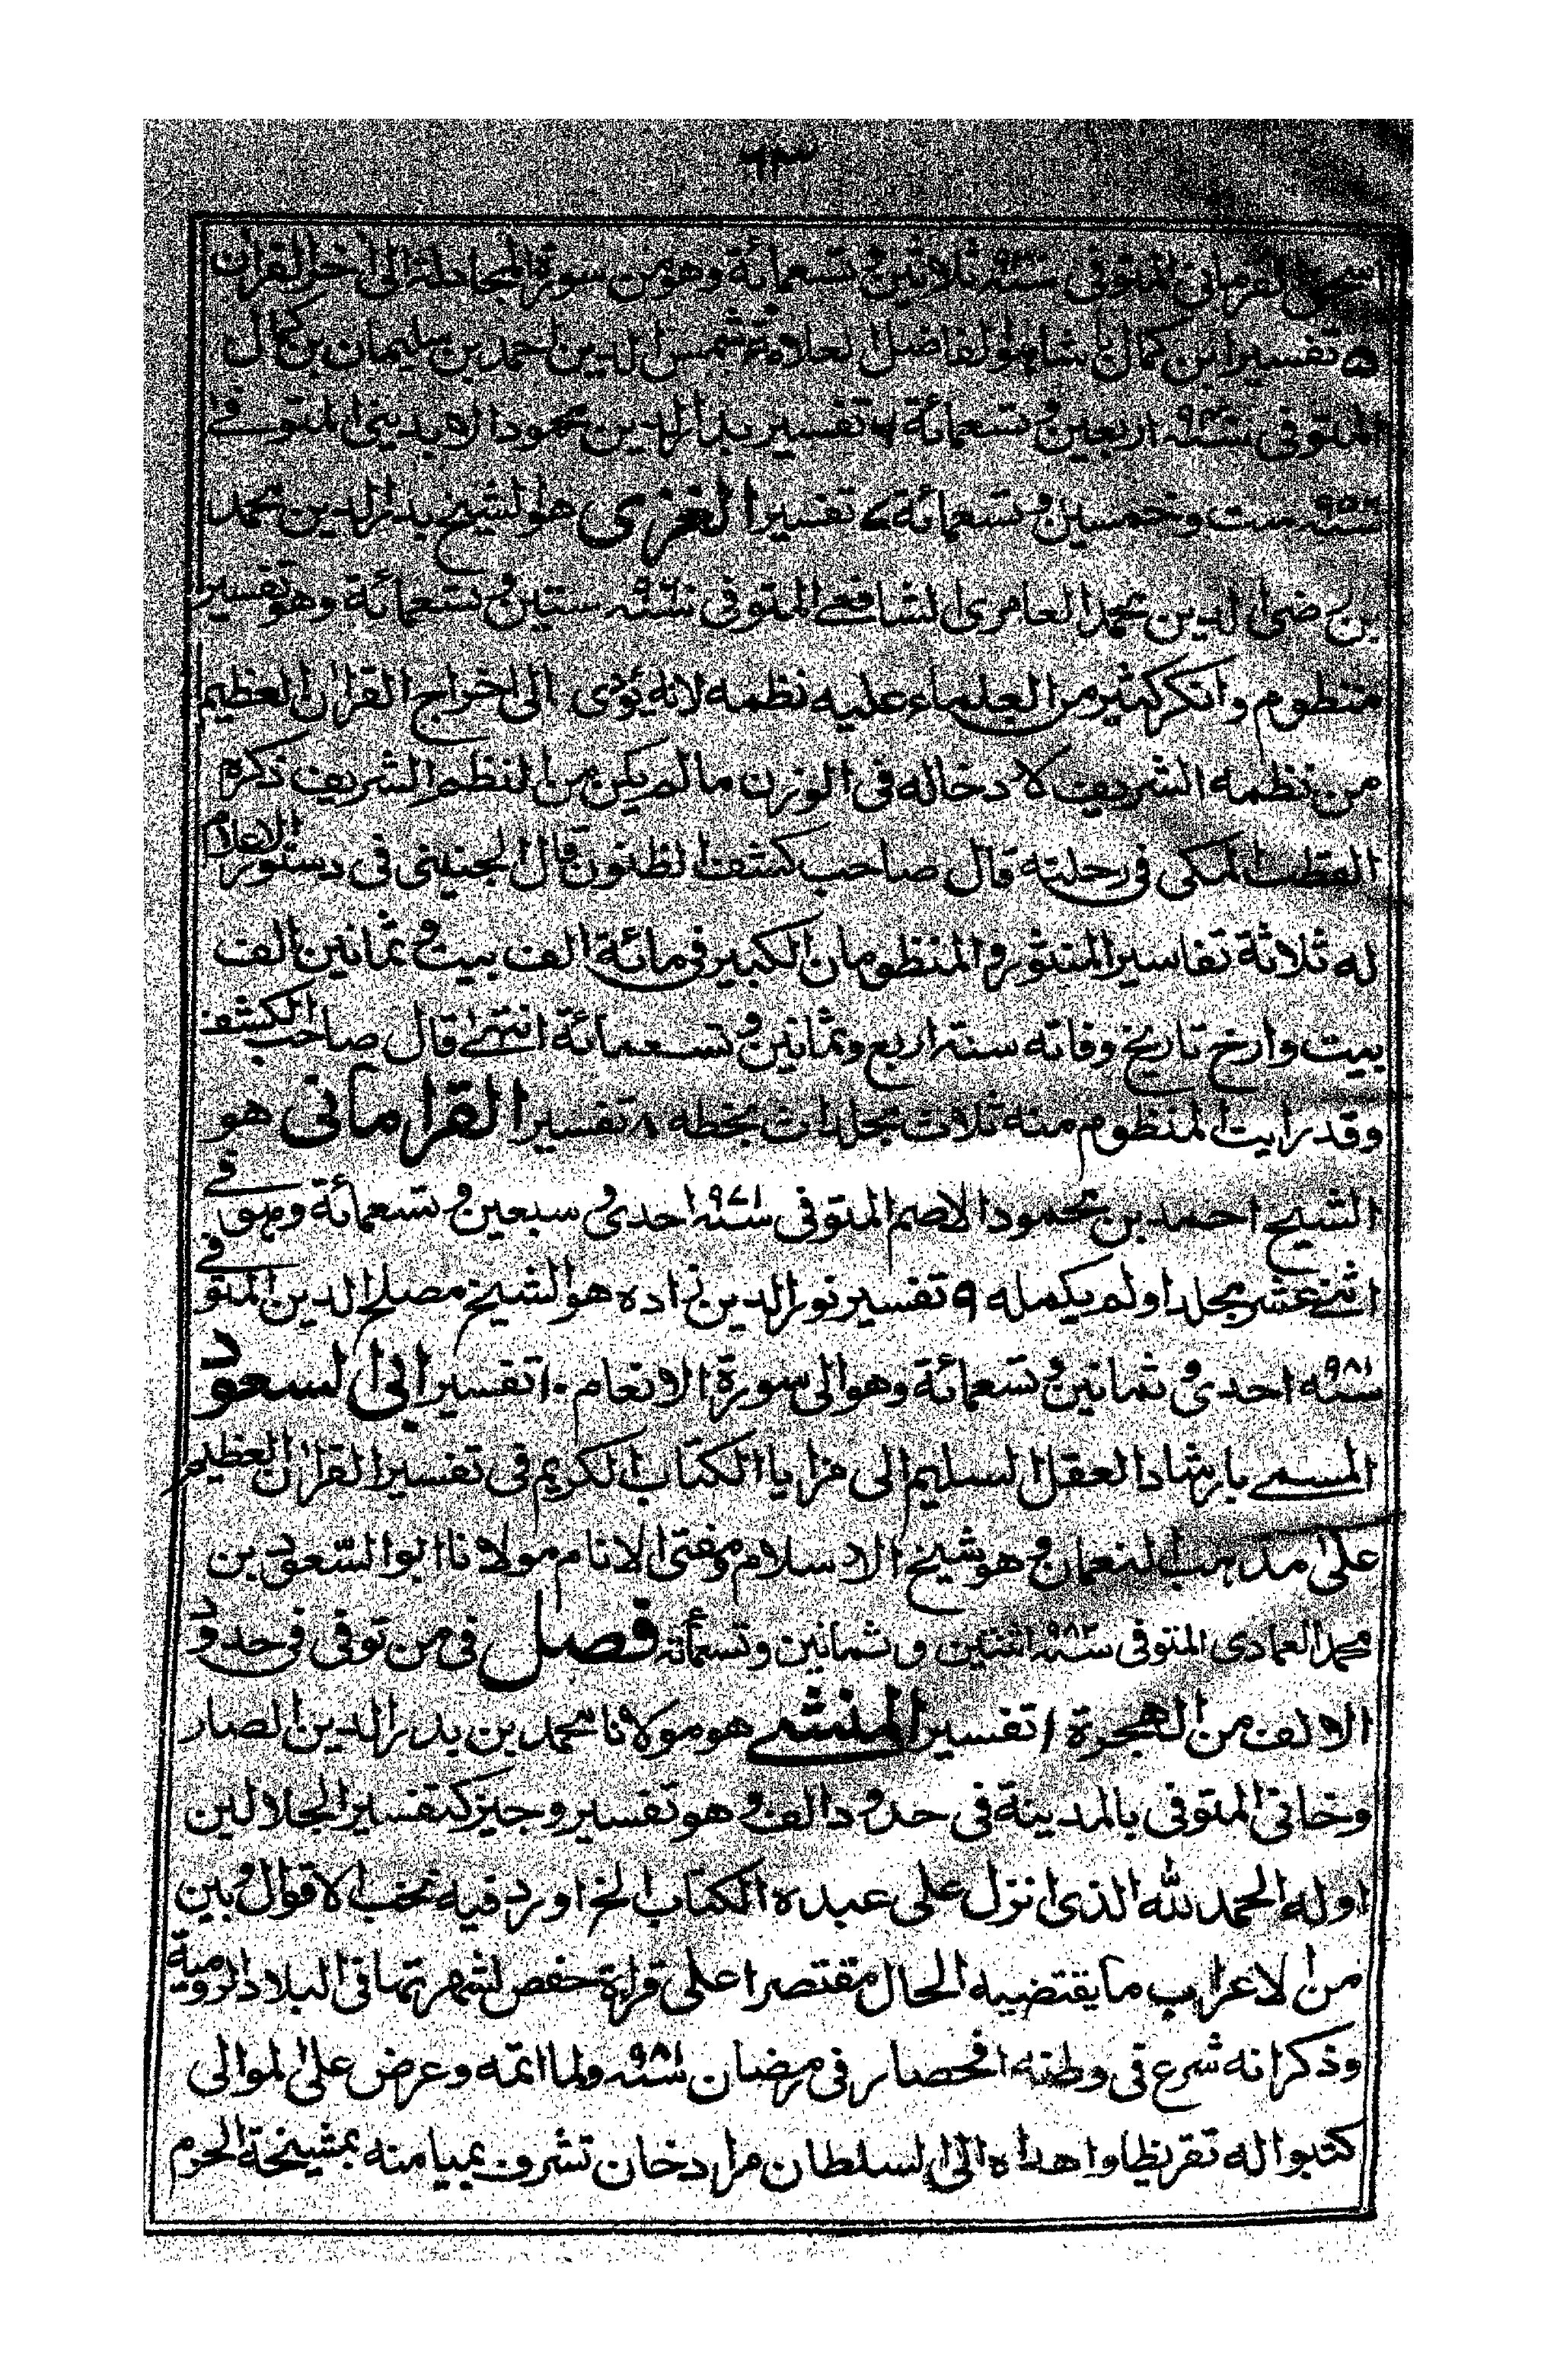 ٦٣
اسحق القرماني المتوفى سنة ٩٣٠ ثلاثين و تسعمائة وهو من سورة المجادلة الى اخر القران
٥ تفسير ابن كمال پاشا هو الفاضل العلامة شمس الدين احمد بن سليمان بن كمال
المتوفى سنة ٩٤٠ اربعين و تسعمائة ٦ تفسير بدر الدين محمود الايديني المتوفى
سنة ٩٥٦ ست وخمسين و تسعمائة ٧ تفسير الغزى هو الشيخ بدر الدين محمد
بن رضى الدين محمد العامرى الشافعي المتوفى سنة ٩٦٠ ستين و تسعمائة وهو تفسير
منظوم وانكر كثير من العلماء عليه نظمه لانه يؤدى الى اخراج القران العظيم
من نظمه الشريف لادخاله فى الوزن ما لم يكن من النظم الشريف ذكره
القطب المكى فى رحلته قال صاحب كشف الظنون قال الجنينى فى دستور الاعلام
له ثلاثة تفاسير المنثور و المنظومان الكبير فى مائة الف بيت و ثمانين الف
بيت وارخ تاريخ وفاته سنة اربع وثمانين و تسعمائة انتهى قال صاحب الكشف
وقد رايت المنظوم منه ثلاث مجلدات بخطه ٨ تفسير القرامانى هو
الشيخ احمد بن محمود الاصم المتوفى سنة ٩٧١ احدى و سبعين و تسعمائة وهو فى
اثنى عشر مجلدا ولم يكمله ٩ تفسير نور الدين زاده هو الشيخ مصلح الدين المتوفى
سنة ٩٨١ احدى و ثمانين و تسعمائة وهو الى سورة الانعام ١٠ تفسير ابى السعود
المسمى بارشاد العقل السليم الى مزايا الكتاب الكريم فى تفسير القران العظيم
على مذهب النعمان و هو شيخ الاسلام ومفتى الانام مولانا ابو السعود بن
محمد العمادى المتوفى سنة ٩٨٢ اثنتين و ثمانين وتسعمائة فصل فى من توفى فى حدود
الالف من الهجرة ١ تفسير المنشى هو مولانا محمد بن بدر الدين الصار
وخانى المتوفى بالمدينة فى حدود الف و هو تفسير وجيز كتفسير الجلالين
اوله الحمد لله الذى انزل على عبده الكتاب الخ اورد فيه نخب الاقوال و بين
من الاعراب ما يقتضيه الحال مقتصرا على قراءة حفص لشهرتها فى البلاد الرومية
وذكر انه شرع فى وطنه اقحصار فى رمضان سنة ٩٨١ ولما اتمه وعرض على الموالى
كتبوا له تقريظا واهداه الى السلطان مراد خان تشرف بميامنه بمشيخة الحرم